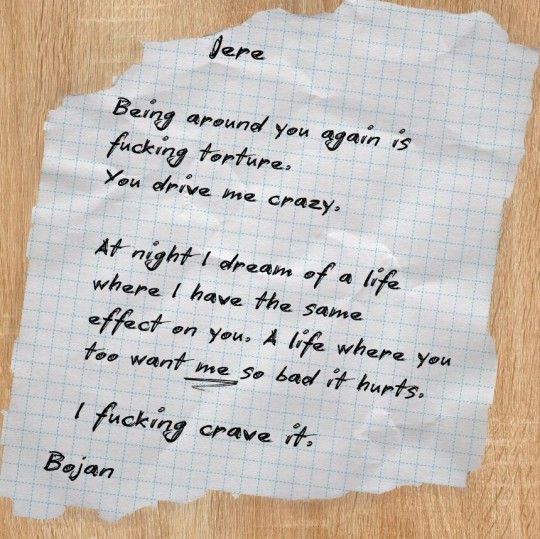 Jere
Being around you again is
fucking torture.
You drive me crazy.
At night I dream of a life
where I have the same
effect on you. A life where you
too want me so bad it hurts.
I fucking crave it.
Bojan